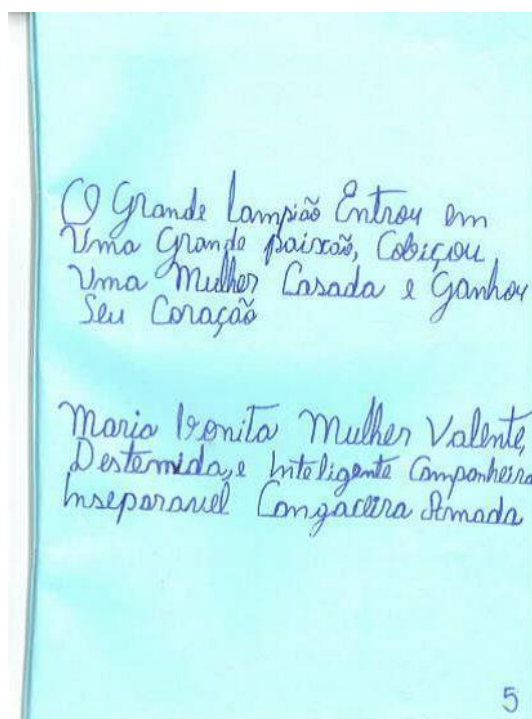 O Grande Lampião Entrou em
Uma Grande paixão, Cobiçou
Uma Mulher Casada e Ganhou
Seu Coração
Maria Bonita Mulher Valente,
Destemida, e Inteligente Companheira
Inseparavel Cangaceira Armada
5